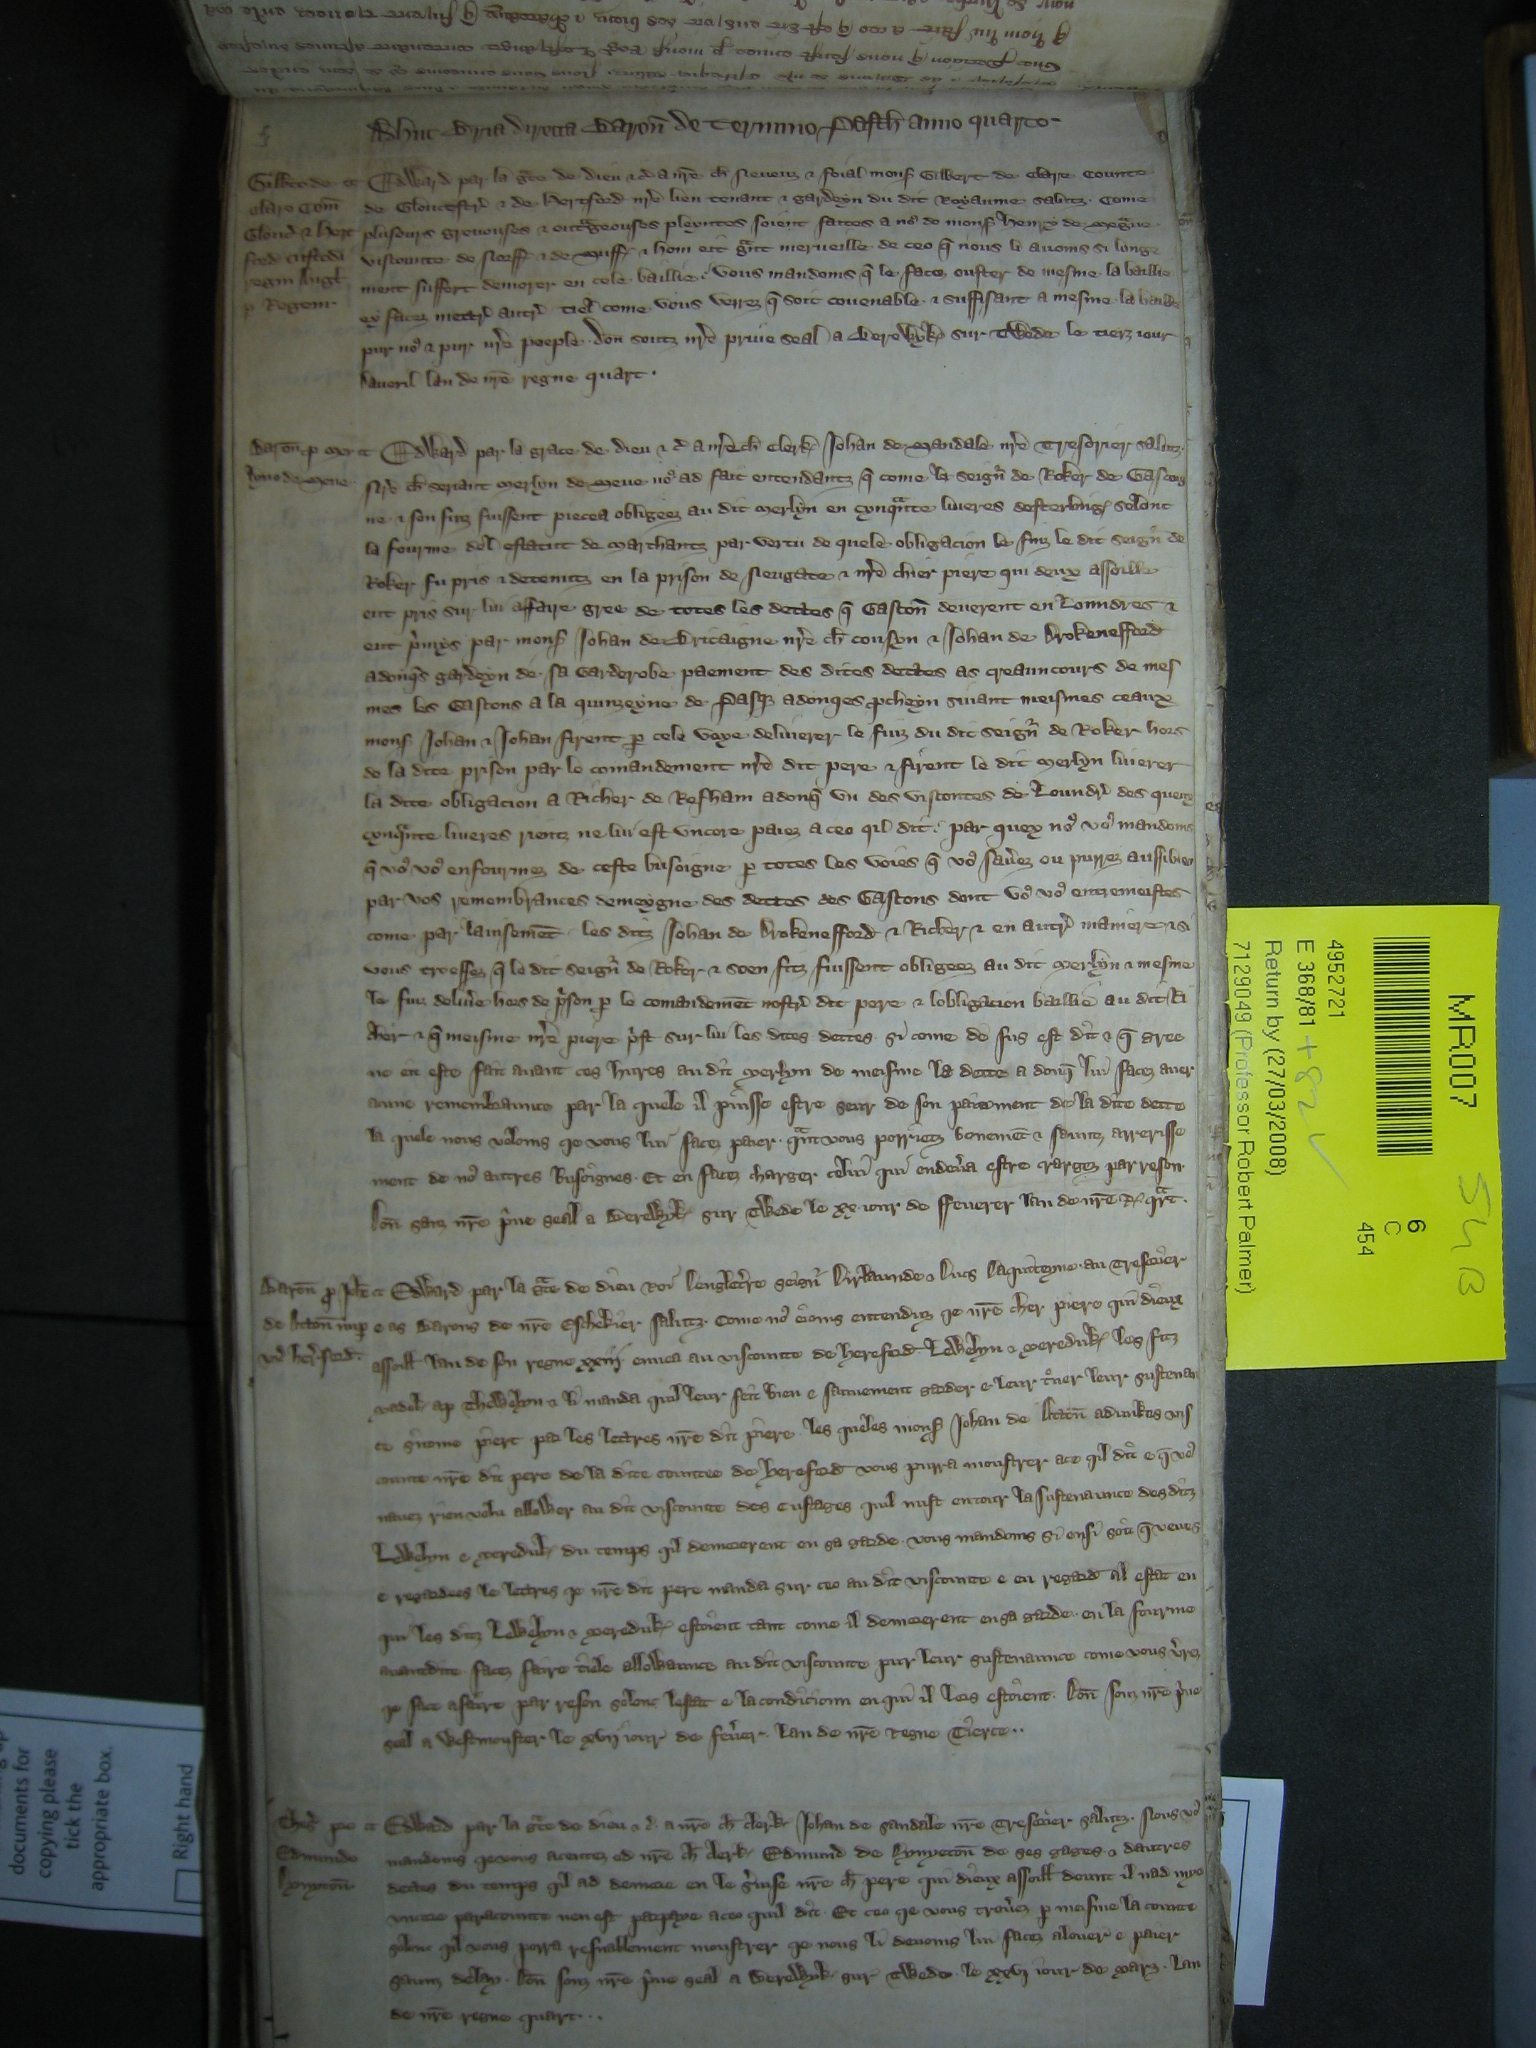 Adhuc Bria directa Baron̄ de Termino Pasch̄ anno quarto
Gilb̄to de
Clare Com̄
Glouc̄ & Hert
ford custodi
regni Angl̄
p Regem
Edward par la gr̄ce de dieu &c̄ a nr̄e ch̄ neveuz & foial mons̄ Gilbert de Clare Counte
de Gloucestr̄ & de Hertford nr̄e lieu tenant & gardeyn du dit Royaume saluz. Come
plusours grevouses & outrageouses pleyntes soient faites a nō de mons̄ Henry de
viscounte de Norff & de Suff & hom eit gr̄nt merveille de ceo q̄ nous li avoms si longe
ment suffert demorer en cele baillie. vous mandoms q̄ le facez ouster de mesme la baillie
ey facez mettr̄ autr̄ tiel come vous verrez q̄ soit covenable & suffisant a mesme la baillie
pur nō & pur nr̄e poeple. Don souz nr̄e prive seal a Berewyk sur Twede le tierz iour
daveril lan de nr̄e regne quart.
Baron̄ p Mer
lyno de Sene
Edward par la grace de dieu &c̄ a nr̄e ch̄ Clerk Johan de Sandale nr̄e Tresorier saluz.
Nr̄e ch̄ seriant Merlyn de Sene nō ad fait entendantz q̄ come le seign̄ de Roker de Gascoig
ne & son fuiz fuissent pieca obligeez au dit Merlyn en cynqnte liveres desterlings solonc
la fourme del estatut de Marchantz par vertu de quele obligacion le fuiz le dit seign̄ de
Roker fu pris & detenuz en la prison de Neugate & nr̄e chier piere qui deux assoille
eut pris sur lui affaire gree de totes les dettes q̄ Gascon̄ deverent en Loundres &
eut p̄mys par mons̄ Johan de Bretaigne nr̄e ch̄ cousyn & Johan de Drokenesford
adonqs gardeyn de sa Garderobe paement des dites dettes as creauncours de mes
mes les Gascons a la quinzeyne de Pasq adonqes p̄cheyn suiant meismes ceaux
mons̄ Johan & Johan firent p cele voye deliverer le fuiz du dit seign̄ de Roker hors
de la dite prison par le comandement nr̄e dit pere & firent le dit Merlyn liverer
la dite obligacion a Richer de Refham adonq̄ un des viscontes de Loundr̄ des queux
cynqnte liveres rientz ne lui est uncore paiez a ceo qil dit. par quey nō vō mandoms
q̄ vō vō enfourmez de ceste busoigne p totes les voies q̄ vō sav̄ez ou purrez aussibien
par vos remembrances demeygne des dettes des Gascons dont vō vō entremeistes
come par lavisement les ditz Johan de Drokenesford & Richer & en autr̄ maniere & si
vous troessez q̄ le dit seign̄ de Roker & soen fitz fuissent obligeez au dit Merlyn & mesme
le fuiz deliv̄e hors de p̄son p le comandemēt nostr̄ dit pere & lobligacion baillie au dit Ri
cher & q̄ meisme nr̄e piere p̄st sur lui les dites dettes si come de sus est dit & q̄ gree
ne eit este fait avant ces hures au dit Merlyn de meisme la dette a donq̄ lui facez aver
aune remembraunce par la quele il puisse estre seur de son paiement de la dite dette
la quele nous voloms qe vous lui facez paier qnt vous porriez bonemēt & sauntz arrerisse
ment de nō autres busoignes. Et en facez charger celui qui endev̄a estre chargez par reson.
Don̄ souz nr̄e p̄ve seal a Berewyk sur Twede le xx iour de Feverer lan de nr̄e R qrt.
Baron̄ p Joh̄e
de Acton̄ nup
vic̄ heref̄ord.
Edward par la gr̄ce de dieu Roi Dengleterre seign̄ Dirlaunde & Ducs Daquiteyne au Tresorier
e as Barons de nr̄e Eschekier saluz. Come nō eioms entenduz qe nr̄e cher piere qui dieux
assoill̄ lan de son regne xxiij envea au viscounte de Hereford Lewelyn & Mereduk les fitz
Madok ap Thlewelyn & li manda quil leur feit bien e sauvement garder e leur tr̄ver leur sustenan
ce si come piert par les lettres nr̄e dit piere. les queles mons̄ Johan de Acton̄ adunkes vis
counte nr̄e dit pere de la dite countee de Hereford vous purra moustrer a ce qil dit e q̄ vō
navez rien volu allower au dit viscounte des custages quil mist entour la sustenaunce des ditz
Lewelyn e Mereduk du temps qil demorerent en sa garde. vous mandoms si ensi soit q̄ veues
e regardees le lettres qe nr̄e dit pere manda sur ceo au dit viscounte e en regard al estat en
qui les ditz Lewelyn & Mereduk estoient tant come il demorerent en sa garde. en la fourme
avantdite facez faire tiele allowaunce au dit viscounte pur leur sustenaunce come vous v̄rez
qe face a faire par reson solonc lestat e la condicioun en qui il lors estoient. Don̄ souz nr̄e p̄ve
seal a Westmouster le xvij iour de fev̄er lan de nr̄e Regne Tierce..
Thes̄ pro
Edmundo
Dynyeton̄
Edward par la gr̄ce de dieu &c̄ a nr̄e ch̄ clerk Johan de Sandale nr̄e Tresorier saluz. Nous vō
mandoms qe vous acontez od nr̄e ch̄ clerk Edmund de Dynyeton̄ de ses gages & dautres
dettes du temps qil ad demore en le s̄vise nr̄e ch̄ pere qui dieux assoill̄ dount il nad mye
uncore paracounte nen est parpaye a ceo quil dit. Et ceo qe vous trov̄ez p meisme la counte
solonc qil vous porra resnablement moustrer qe nous li devoms lui facez alower e paier
saunz delay. Don̄ souz nr̄e p̄ve seal a Berewyk sur Twede le xxvj iour de Marz. Lan
de nr̄e regne quart..
MR007
6
C
454
54B
4952721
E 368/81 + 82 ✓
Return by (27/03/2008)
7129049 (Professor Robert Palmer)
documents for
copying please
tick the
appropriate box.
Right hand